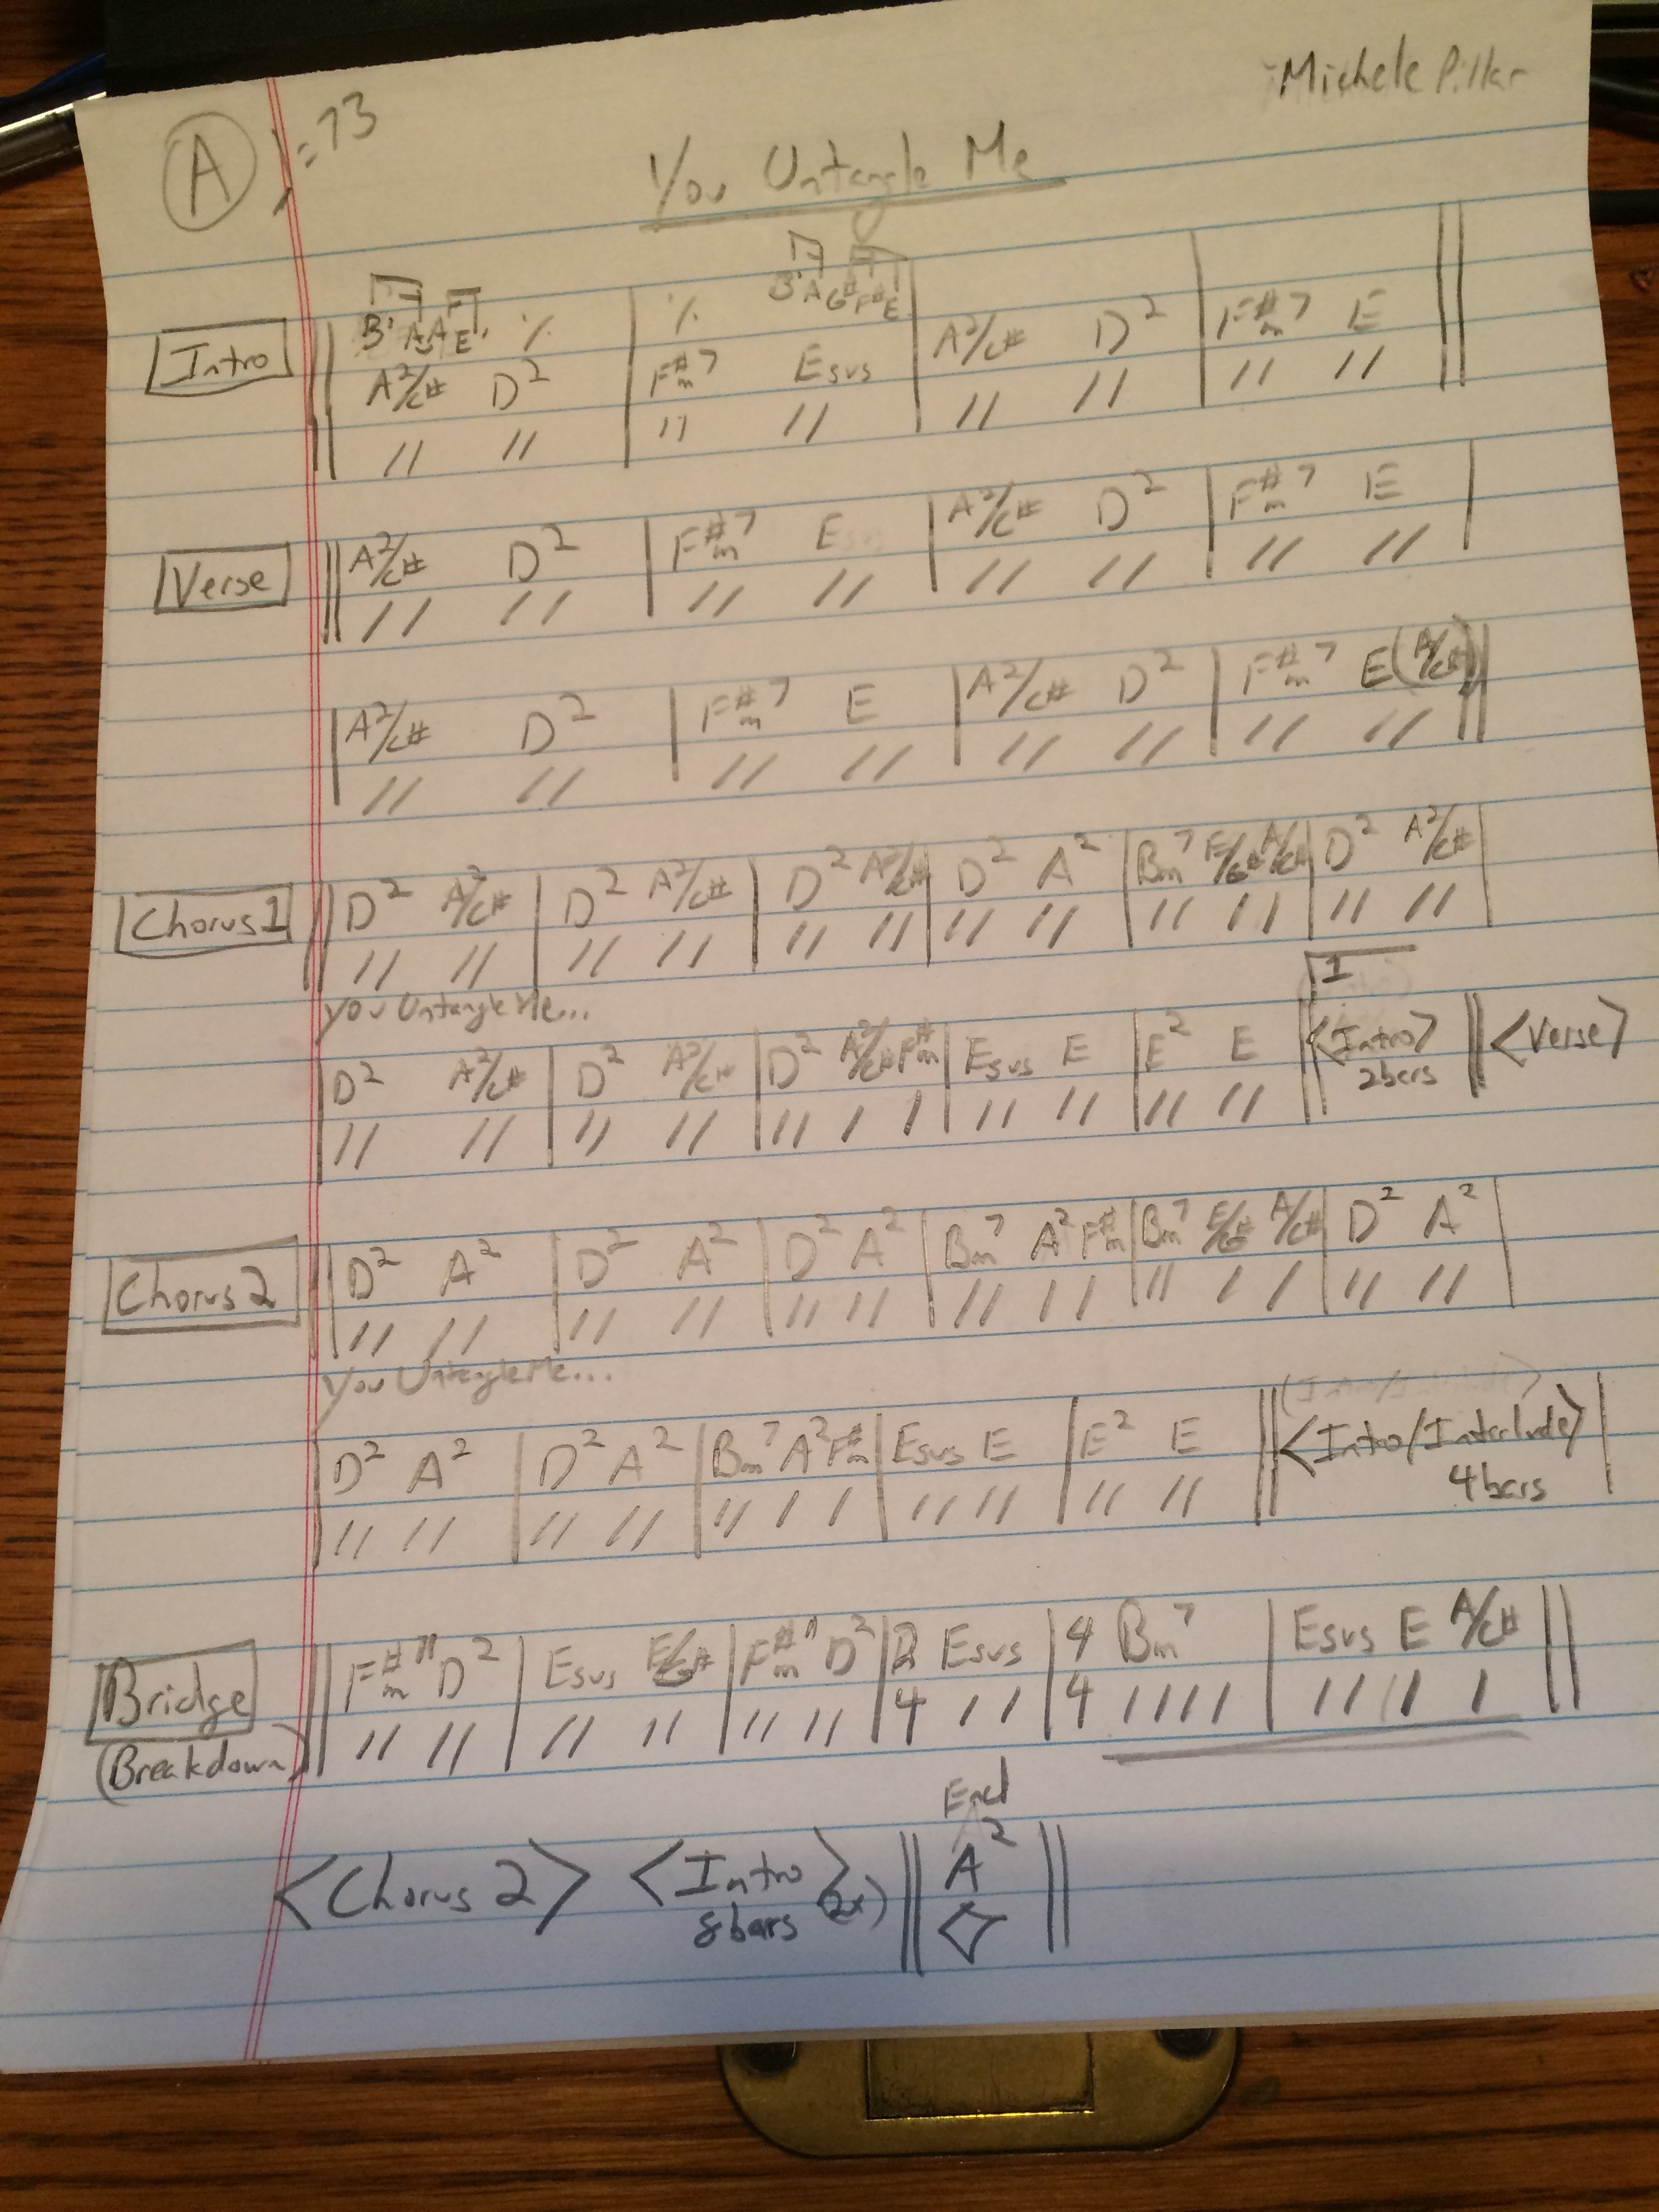 Michele Pillar
A ♩=73
You Untangle Me
B A A E % | % B A G# F# E
Intro || A2/C# D2 | F#m7 Esus | A2/C# D2 | F#m7 E ||
// // | // // | // // | // //
Verse || A2/C# D2 | F#m7 Esus | A2/C# D2 | F#m7 E |
// // | // // | // // | // //
| A2/C# D2 | F#m7 E | A2/C# D2 | F#m7 E (A/C#) ||
// // | // // | // // | // //
Chorus 1 || D2 A2/C# | D2 A2/C# | D2 A2/C# | D2 A2 | Bm7 E/G# A/C# | D2 A2/C# |
// // | // // | // // | // // | // / / | // //
You Untangle Me...
1
| D2 A2/C# | D2 A2/C# | D2 A2/C# F#m | Esus E | E2 E || <Intro> || <Verse>
2bars
// // | // // | // / / | // // | // //
Chorus 2 || D2 A2 | D2 A2 | D2 A2 | Bm7 A2 F#m | Bm7 E/G# A/C# | D2 A2 |
// // | // // | // // | // / / | // / / | // //
You Untangle Me...
| D2 A2 | D2 A2 | Bm7 A2 F#m | Esus E | E2 E || <Intro/Interlude> |
4bars
// // | // // | // / / | // // | // //
Bridge || F#m11 D2 | Esus E/G# | F#m11 D2 | 2/4 Esus | 4/4 Bm7 | Esus E A/C# ||
(Breakdown) // // | // // | // // | / / | //// | // / /
End
<Chorus 2> <Intro> (2x) || A2 ||
8bars ◇